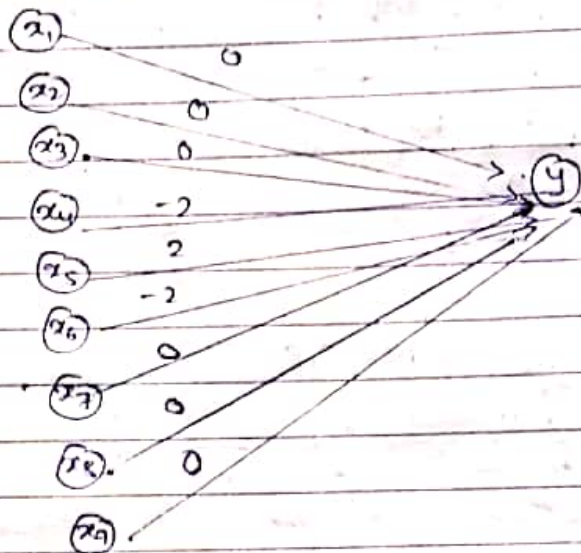 x1
0
x2
0
x3
0
y
x4
-2
x5
2
-2
x6
0
x7
0
x8
0
x9